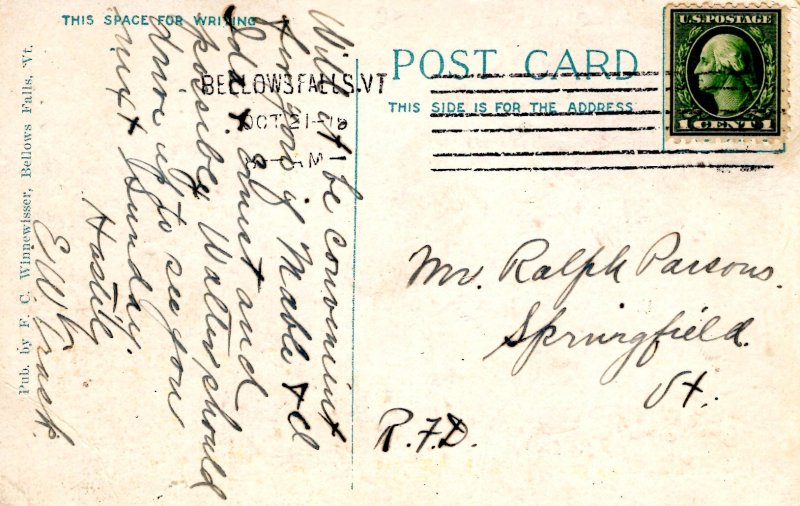 THIS SPACE FOR WRITING
POST CARD
THIS SIDE IS FOR THE ADDRESS
U.S. POSTAGE
1 CENT 1
BELLOWS FALLS. VT
OCT 21
AM
Will it be convenient
for you if Mable &
Ida & Ernest and
possibly Walter should
drive up to see you
next Sunday.
Hastily
E. W.
Mr. Ralph Parsons.
Springfield.
Vt.
R.F.D.
Pub. by F. C. Winnewisser, Bellows Falls, Vt.